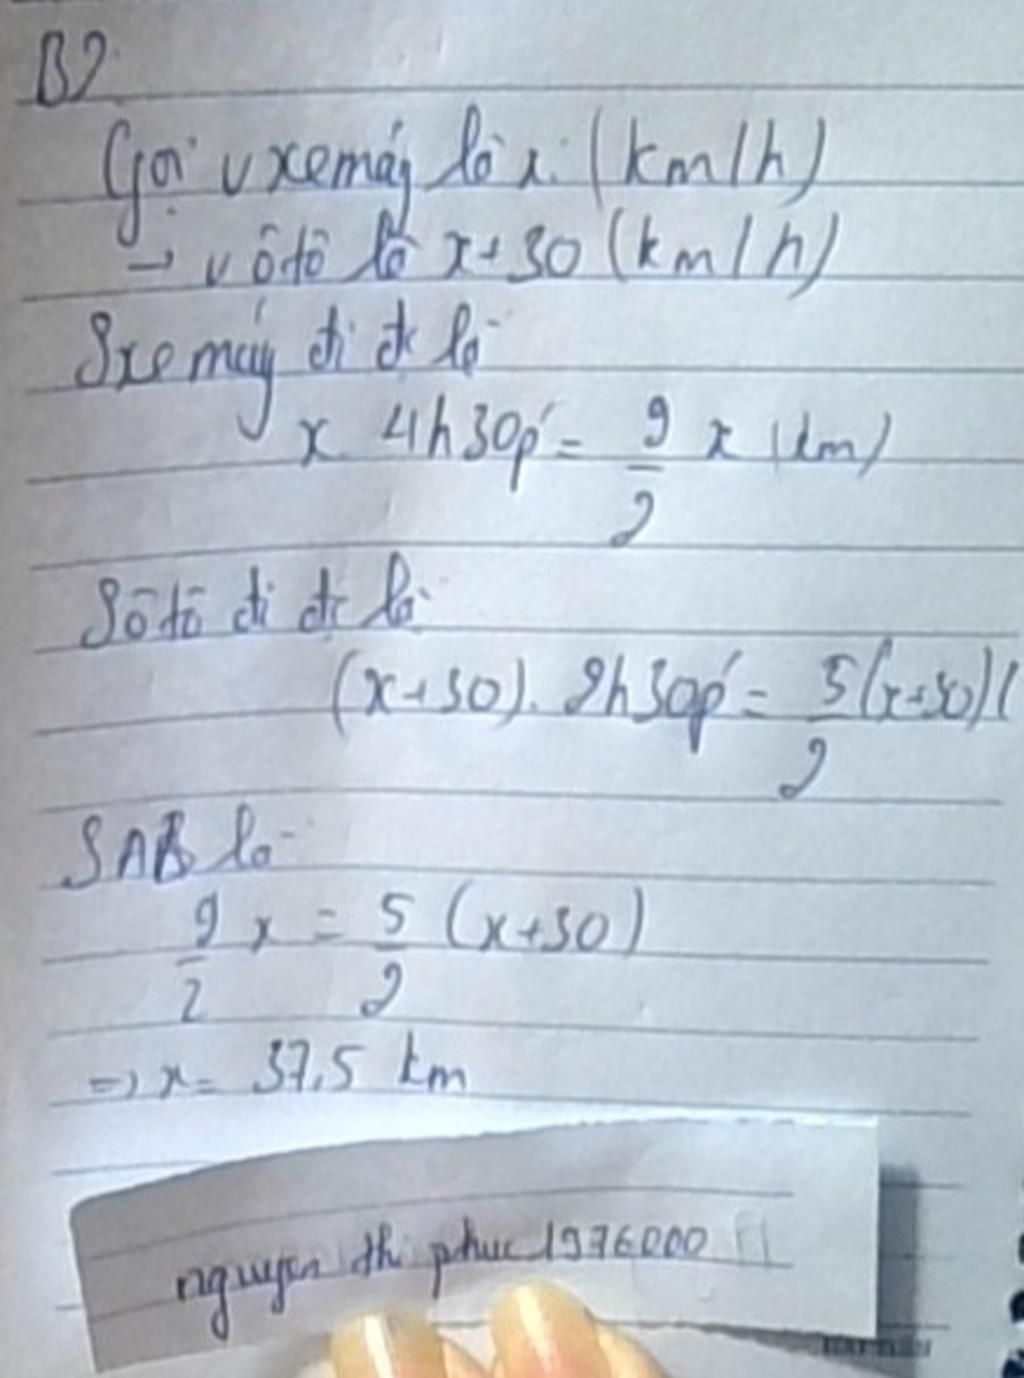 B2
Gọi v xe máy là x (km/h)
→ v ô tô là x+30 (km/h)
S xe máy đi đc là
x 4h30p' = 9/2 x (km)
S ô tô đi đc là
(x+30). 2h30p' = 5/2 (x+30) (
SAB là
9/2 x = 5/2 (x+30)
=> x = 37,5 km
nguyen thi phuc 1976000